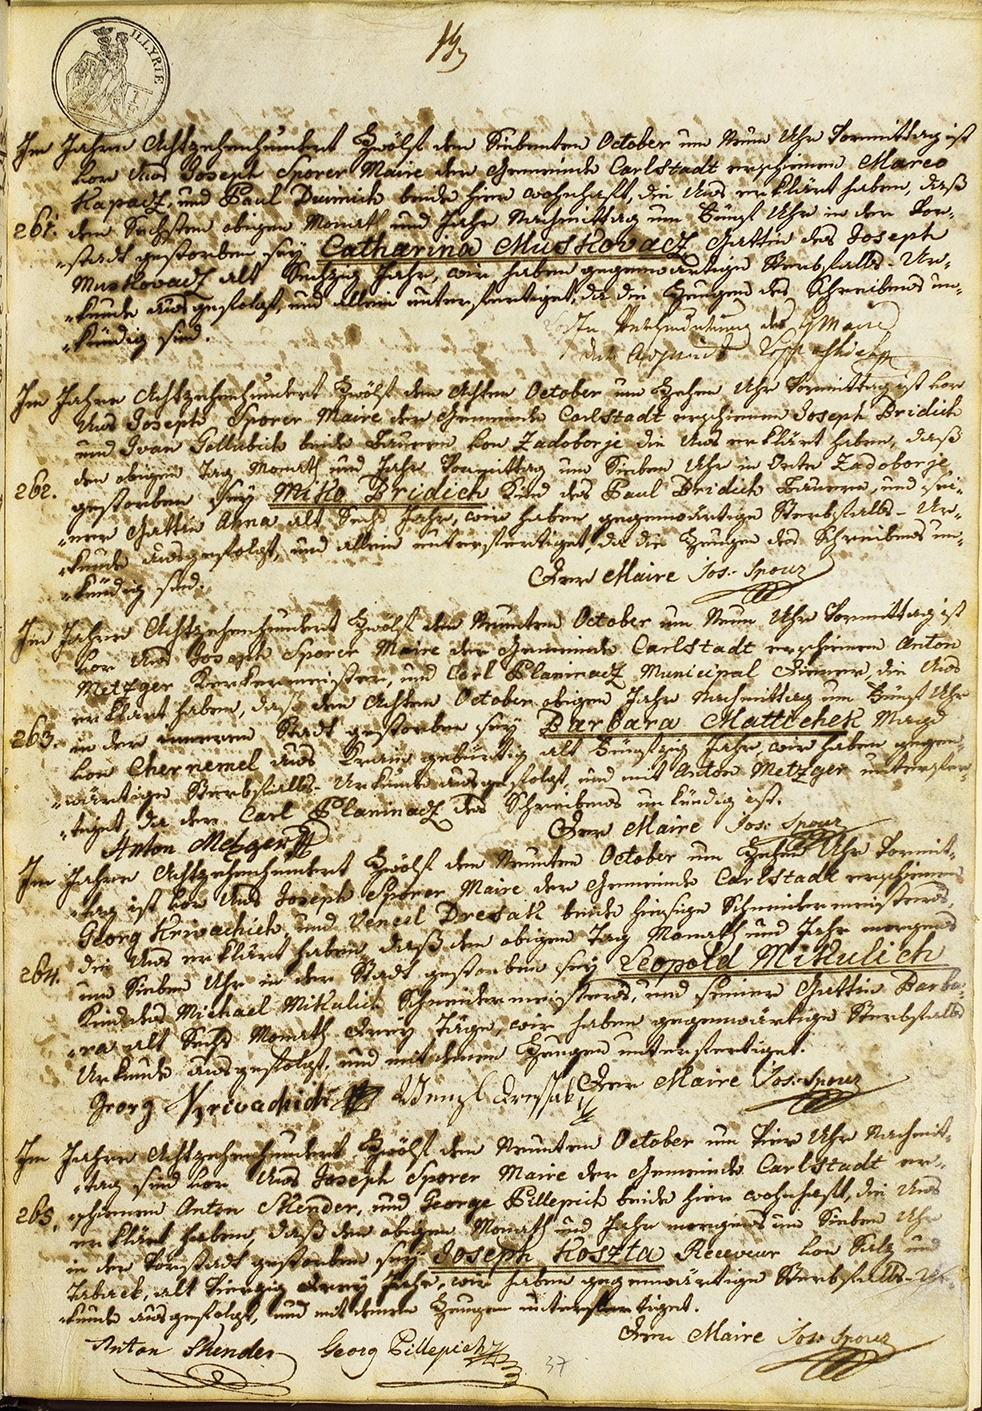 19
ILLYRIE
Im Jahre Achtzehenhundert Zwölf den Siebenten October um Neun Uhr Vormittag ist
vor Uns Joseph Sporer Maire der Gemeinde Carlstadt erschienen Marco
Kapacz, und Paul Duimich beide hier wohnhaft, die Uns erklärt haben, daß
261. den Sechsten obigen Monath und Jahr Nachmittag um Fünf Uhr in der Vor-
-stadt gestorben sey Catharina Muskovacz Gattin des Joseph
Muskovacz alt Sechzig Jahr, wir haben gegenwärtige Sterbfalls-Ur-
-kunde ausgefolgt, und allein unterfertiget, da die Zeugen des Schreibens un-
-kündig sind.
In Verhinderung des H Maire
der Adjunct
Im Jahre Achtzehenhundert Zwölf den Achten October um Zehen Uhr Vormittag ist vor
Uns Joseph Sporer Maire der Gemeinde Carlstadt erschienen Joseph Bridich
und Ivan Gollubich beide Bauern von Zadoborje die Uns erklärt haben, daß
den obigen Tag Monath und Jahr Vormittag um Sieben Uhr in Orte Zadoborje
262. gestorben sey Miko Bridich Kind des Paul Bridich Bauern, und sei-
-ner Gattin Anna alt Sechs Jahr, wir haben gegenwärtige Sterbfalls-Ur-
-kunde ausgefolgt, und allein unterfertiget, da die Zeugen des Schreibens un-
-kündig sind.
Der Maire Jos: Sporer
Im Jahre Achtzehenhundert Zwölf den Neunten October um Neun Uhr Vormittag ist
vor Uns Joseph Sporer Maire der Gemeinde Carlstadt erschienen Anton
Metzger Kerkermeister, und Carl Planinacz Municipal Diener, die Uns
erklärt haben, daß den Achten October obigen Jahr Nachmittag um Fünf Uhr
263. in der inneren Stadt gestorben sey Barbara Mattichek Magd
von Chernemel aus Krain gebürtig alt Fünfzig Jahr, wir haben gegen-
-wärtige Sterbfalls-Urkunde ausgefolgt, und mit Anton Metzger unterfer-
-tiget, da der Carl Planinacz des Schreibens unkündig ist.
Anton Metzger Der Maire Jos: Sporer
Im Jahre Achtzehenhundert Zwölf den Neunten October um Zehen Uhr Vormit-
-tag ist vor Uns Joseph Sporer Maire der Gemeinde Carlstadt erschienen
Georg Krivachich, und Vencil Dresak beide hiesige Schneidermeisters,
die Uns erklärt haben, daß den obigen Tag Monath und Jahr morgens
264. um Sieben Uhr in der Stadt gestorben sey Leopold Mikulich
Kind des Michael Mikulich Schneidermeisters, und seiner Gattin Barba-
-ra alt Sechs Monath Drey Täge, wir haben gegenwärtige Sterbfalls
Urkunde ausgefolgt, und mit denen Zeugen unterfertiget.
Georg Krivachich Wenzl Dressak Der Maire Jos: Sporer
Im Jahre Achtzehenhundert Zwölf den Neunten October um Vier Uhr Nachmit-
-tag sind vor Uns Joseph Sporer Maire der Gemeinde Carlstadt er-
265. -schienen Anton Skender, und George Pillepich beide hier wohnhaft, die Uns
erklärt haben, daß den obigen Monath und Jahr morgens um Sieben Uhr
in der Vorstadt gestorben sey Joseph Koszta Receveur von Salz und
Taback, alt Vierzig Drey Jahr, wir haben gegenwärtige Sterbfalls-Ur-
-kunde ausgefolgt, und mit denen Zeugen unterfertiget.
Anton Skender Georg Pillepich Der Maire Jos: Sporer
37